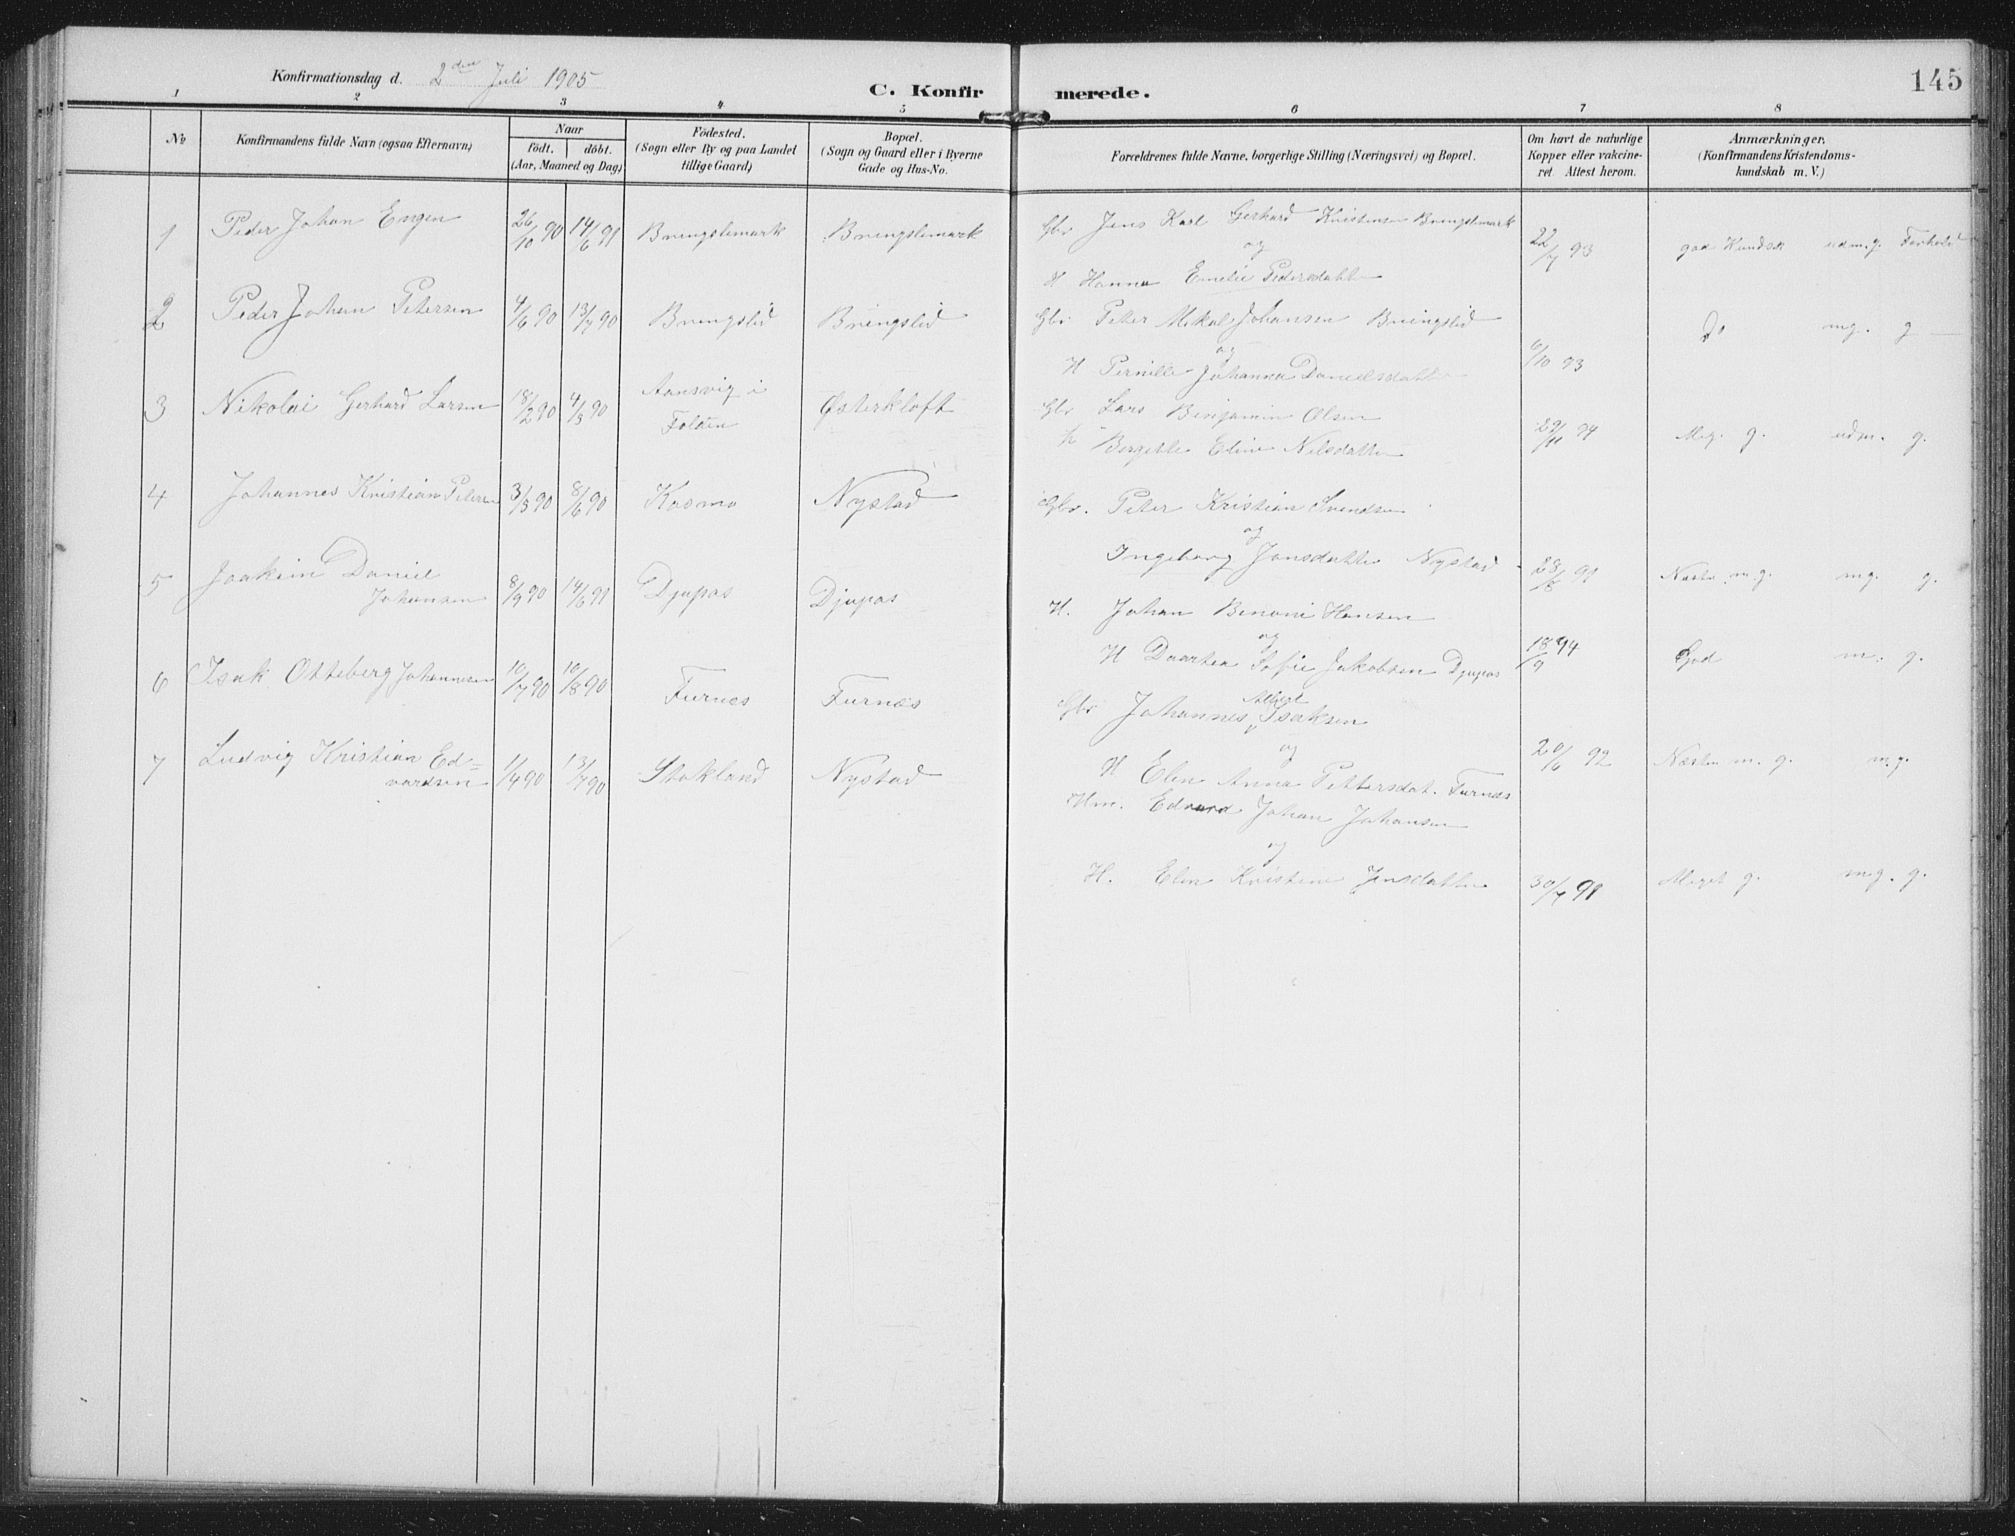 Konfirmationsdag d. 2den Juli 1905
C. Konfirmerede.
145
1 2 3 4 5 6 7 8
No
Konfirmandens fulde Navn (ogsaa Efternavn)
Naar
födt. döbt.
(Aar, Maaned og Dag)
Födested.
(Sogn eller By og paa Landet
tillige Gaard)
Bopæl.
(Sogn og Gaard eller i Byerne
Gade og Hus-No.
Forældrenes fulde Navne, borgerlige Stilling (Næringsvei) og Bopæl.
Om havt de naturlige
Kopper eller vakcine-
ret. Attest herom.
Anmærkninger.
(Konfirmandens Kristendoms-
kundskab m. V.)
1 Peder Johan Engen 26/10 90 14/6 91 Bringslimark Bringslimark
Gbr Jens Karl Gerhard Kristensen Bringslimark
og
H Hanna Emelie Pedersdatter
22/7 93 god Kundsk udm. g. Forhold
2 Peder Johan Petersen 4/6 90 13/7 90 Bringslid Bringslid
Gbr Peter Mikal Johansen Bringslid
og
H Pernille Johanna Danielsdatter
6/10 93 Do mg. g —
3 Nikolai Gerhard Larsen 18/2 90 4/5 90 Aansvig i
Folden
Østerkløft
Gbr Lars Benjamin Olsen
H Borgitte Eline Nilsdatter
29/11 94 Meg. g. udm. g.
4 Johannes Kristian Petersen 3/5 90 8/6 90 Kosmo Nystad
Gbr. Peter Kristian Svendsen
og
Ingeborg Jonsdatter Nystad
28/6 91 Næsten m. g. mg. g.
5 Joakim Daniel
Johansen
8/9 90 14/6 91 Djupos Djupos
H. Johan Benoni Hansen
og
H Daartea Sofie Jakobsen Djupos
18/9 94 God m. g.
6 Isak Otteberg Johannesen 10/7 90 10/8 90 Furnes Furnæs
Gbr Johannes Albigt Isaksen
og
H Elen Anna Pettersdat. Furnæs
20/6 92 Næsten m. g. m.g.
7 Ludvig Kristian Ed=
vardsen
1/4 90 13/7 90 Stokland Nystad
Hm. Edvard Johan Johansen
og
H. Elen Kristine Jensdatter
30/7 91 Meget g. m.g. g.